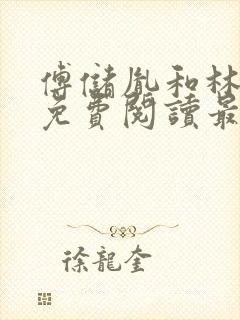 傅儲胤和林
免費閱讀最
徐龍奎